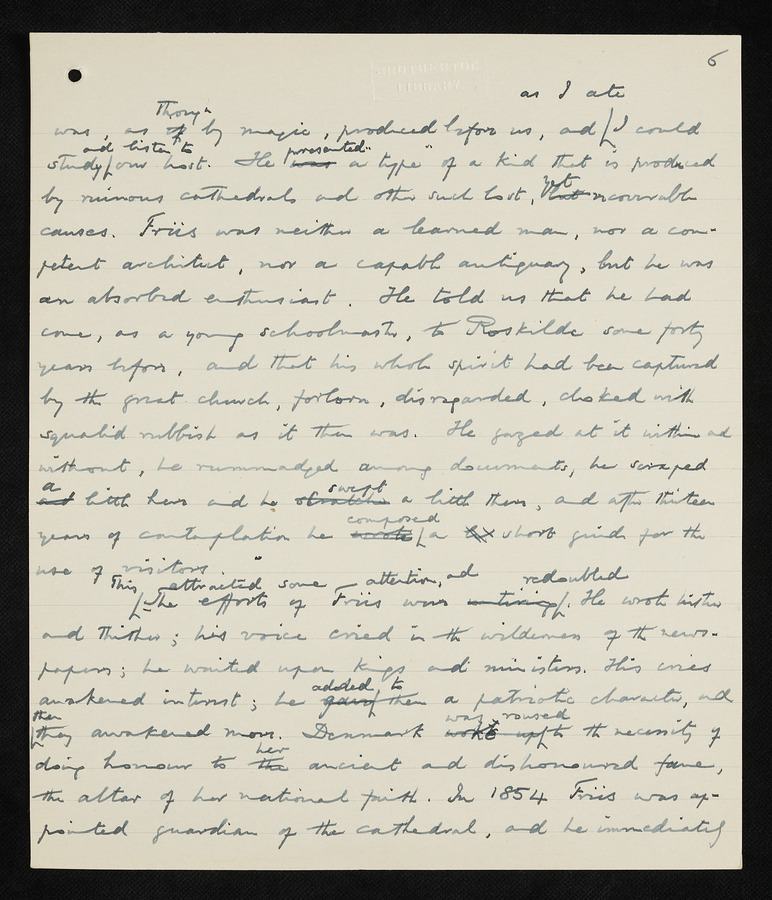 6
BROTHERTON
LIBRARY
as I ate
though
was, as if by magic, produced before us, and I could
and listen to presented
study our host. He was "a type" of a kind that is produced
yet
by ruinous cathedrals and other such lost, but recoverable
causes. Friis was neither a learned man, nor a com-
petent architect, nor a capable antiquary, but he was
an absorbed enthusiast. He told us that he had
come, as a young schoolmaster, to Roskilde some forty
years before, and that his whole spirit had been captured
by the great church, forlorn, disregarded, choked with
squalid rubbish as it then was. He gazed at it within and
without, he rummadged among documents, he scraped
a swept
and little here and he scratched a little there, and after thirteen
composed
years of contemplation he wrote a short guide for the
use of visitors.
This attracted some attention, and redoubled
The efforts of Friis were untiring. He wrote hither
and thither; his voice cried in the wilderness of the news-
papers; he waited upon kings and ministers. His cries
added to
awakened interest; he gave them a patriotic character, and
then was roused
they awakened more. Denmark woke up to the necessity of
her
doing honour to the ancient and dishonoured fane,
the altar of her national faith. In 1854 Friis was ap-
pointed guardian of the cathedral, and he immediately